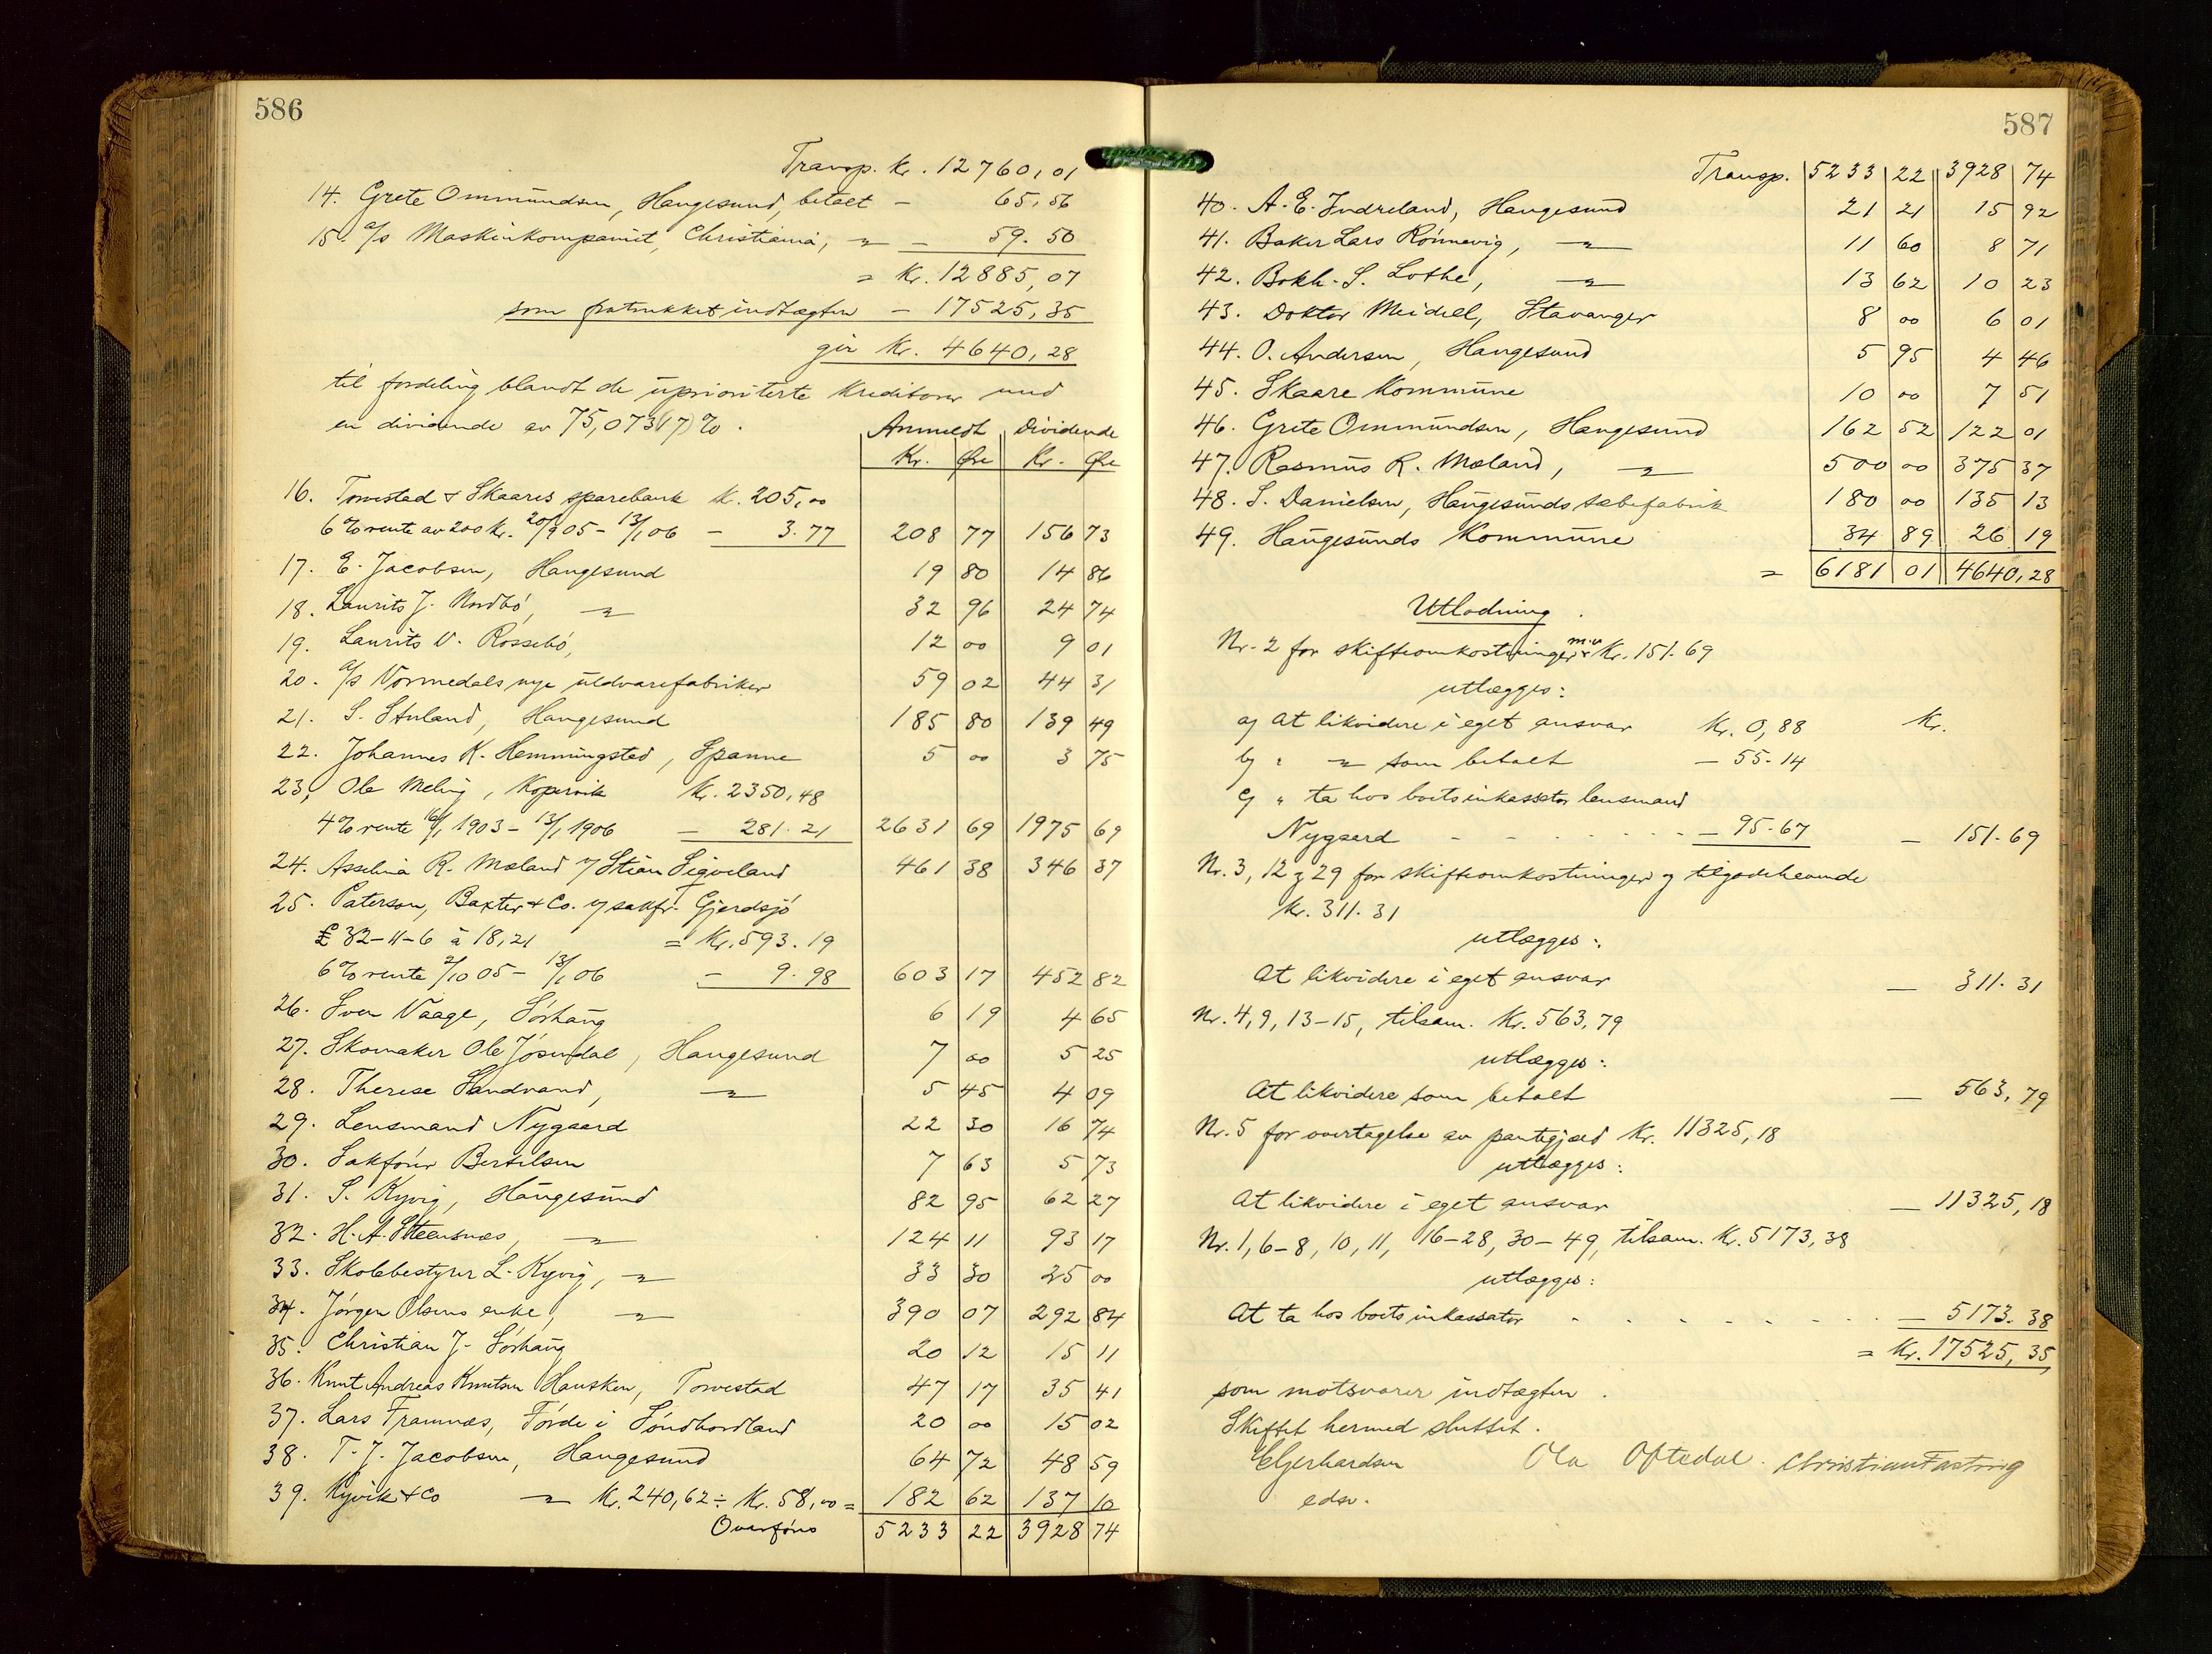 586
Transp. Kr. 12760,01
14. Grete Ommundsen, Haugesund, betalt – 65,56
15. A/s Maskinkompaniet, Christiania, –"– – 59.50
= Kr. 12885,07
som fratrukket indtægten – 17525,35
gir Kr. 4640,28
til fordeling blandt de uprioriterte kreditorer med
en dividende av 75,073(17)%.
Anmeldt Dividende
Kr. Øre Kr. Øre
16. Torvestad & Skaares sparebank kr. 205,00
6% rente av 200 kr. 20/9 05 – 13/1 06 – 3.77 208 77 156 73
17. E. Jacobsen, Haugesund 19 80 14 86
18. Laurits J. Nordbö, –"– 32 96 24 74
19. Laurits V. Rossebö, 12 00 9 01
20. A/s Vormedals nye uldvarefabriker 59 02 44 31
21. S. Stuland, Haugesund 185 80 139 49
22. Johannes K. Hemmingstad, Spanne 5 00 3 75
23. Ole Meling, Kopervik Kr. 2350,48
4% rente 16/1 1903 – 13/1 1906 – 281.21 2631 69 1975 69
24. Asselina R. Mæland v/ Stian Sigveland 461 38 346 37
25. Paterson, Baxter & Co. v/ sakfr. Gjerdsjö
£ 32–11–6 à 18,21 = Kr. 593.19
6% rente 2/10 05 – 13/1 06 – 9.98 603 17 452 82
26. Sven Vaage, Sörhaug 6 19 4 65
27. Skomaker Ole Jösendal, Haugesund 7 00 5 25
28. Therese Sandvand, –"– 5 45 4 09
29. Lensmand Nygaard 22 30 16 74
30. Sakförer Bertelsen 7 63 5 73
31. S. Kyvig, Haugesund 82 95 62 27
32. H. A. Steensnæs, –"– 124 11 93 17
33. Skolebestyrer L. Kyvig, –"– 33 30 25 00
34. Jörgen Olsens enke, –"– 390 07 292 84
35. Christian J. Sörhaug 20 12 15 11
36. Knut Andreas Knutsen Hausken, Torvestad 47 17 35 41
37. Lars Framnæs, Förde i Söndhordland 20 00 15 02
38. T. J. Jacobsen, Haugesund 64 72 48 59
39. Kyvik & Co –"– Kr. 240,62 ÷ Kr. 58,00 = 182 62 137 10
Overföres 5233 22 3928 74
587
Transp. 5233 22 3928 74
40. A. E. Indreland, Haugesund 21 21 15 92
41. Baker Lars Rönnevig, –"– 11 60 8 71
42. Bokh. S. Lothe, –"– 13 62 10 23
43. Doktor Meidell, Stavanger 8 00 6 01
44. O. Andersen, Haugesund 5 95 4 46
45. Skaare Kommune 10 00 7 51
46. Grete Ommundsen, Haugesund 162 52 122 01
47. Rasmus R. Mæland, –"– 500 00 375 37
48. S. Danielsen, Haugesunds sæbefabrik 180 00 135 13
49. Haugesunds Kommune 34 89 26 19
= 6181 01 4640,28
Utlodning.
Nr. 2 for skifteomkostninger m.v. Kr. 151.69
utlægges:
a) At likvidere i eget ansvar Kr. 0,88 Kr.
b) " –"– som betalt – 55.14
c) " ta hos boets inkassator lensmand
Nygaard – 95.67 – 151.69
Nr. 3, 12 & 29 for skifteomkostninger og tilgodehavende
Kr. 311.31
utlægges:
At likvidere i eget ansvar – 311.31
Nr. 4, 9, 13–15, tilsam. Kr. 563,79
utlægges:
At likvidere som betalt – 563,79
Nr. 5 for overtagelse av pantegjæld Kr. 11325,18
utlægges:
At likvidere i eget ansvar – 11325,18
Nr. 1, 6–8, 10, 11, 16–28, 30–49, tilsam. Kr. 5173,38
utlægges:
At ta hos boets inkassator – 5173.38
= Kr. 17525,35
som motsvarer indtægten.
Skiftet hermed sluttet.
E Gerhardsen Ola Oftedal. Christian Fastring
edsv.